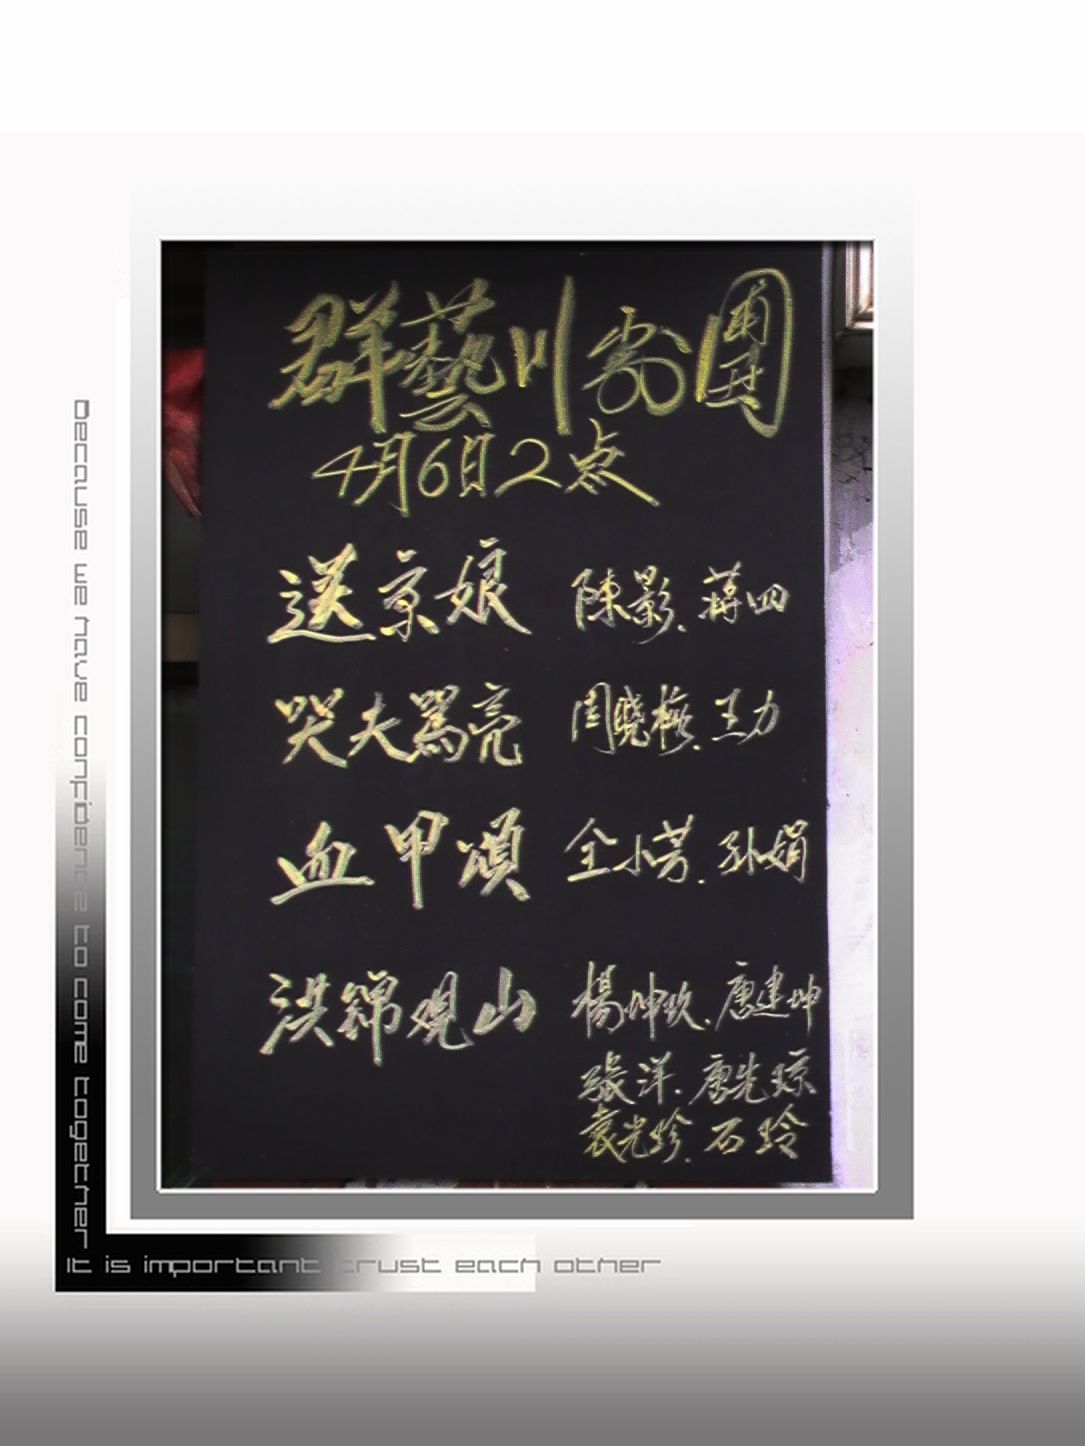 群藝川剧團
4月6日2点
送京娘 陳影、蒋四
哭夫骂亮 周晓梅、王力
血甲頌 全小芳、孙娟
洪錦观山 楊坤 、唐建坤
張洋、唐先琼
袁光珍、石玲
Because we have confidence to come together
It is important trust each other